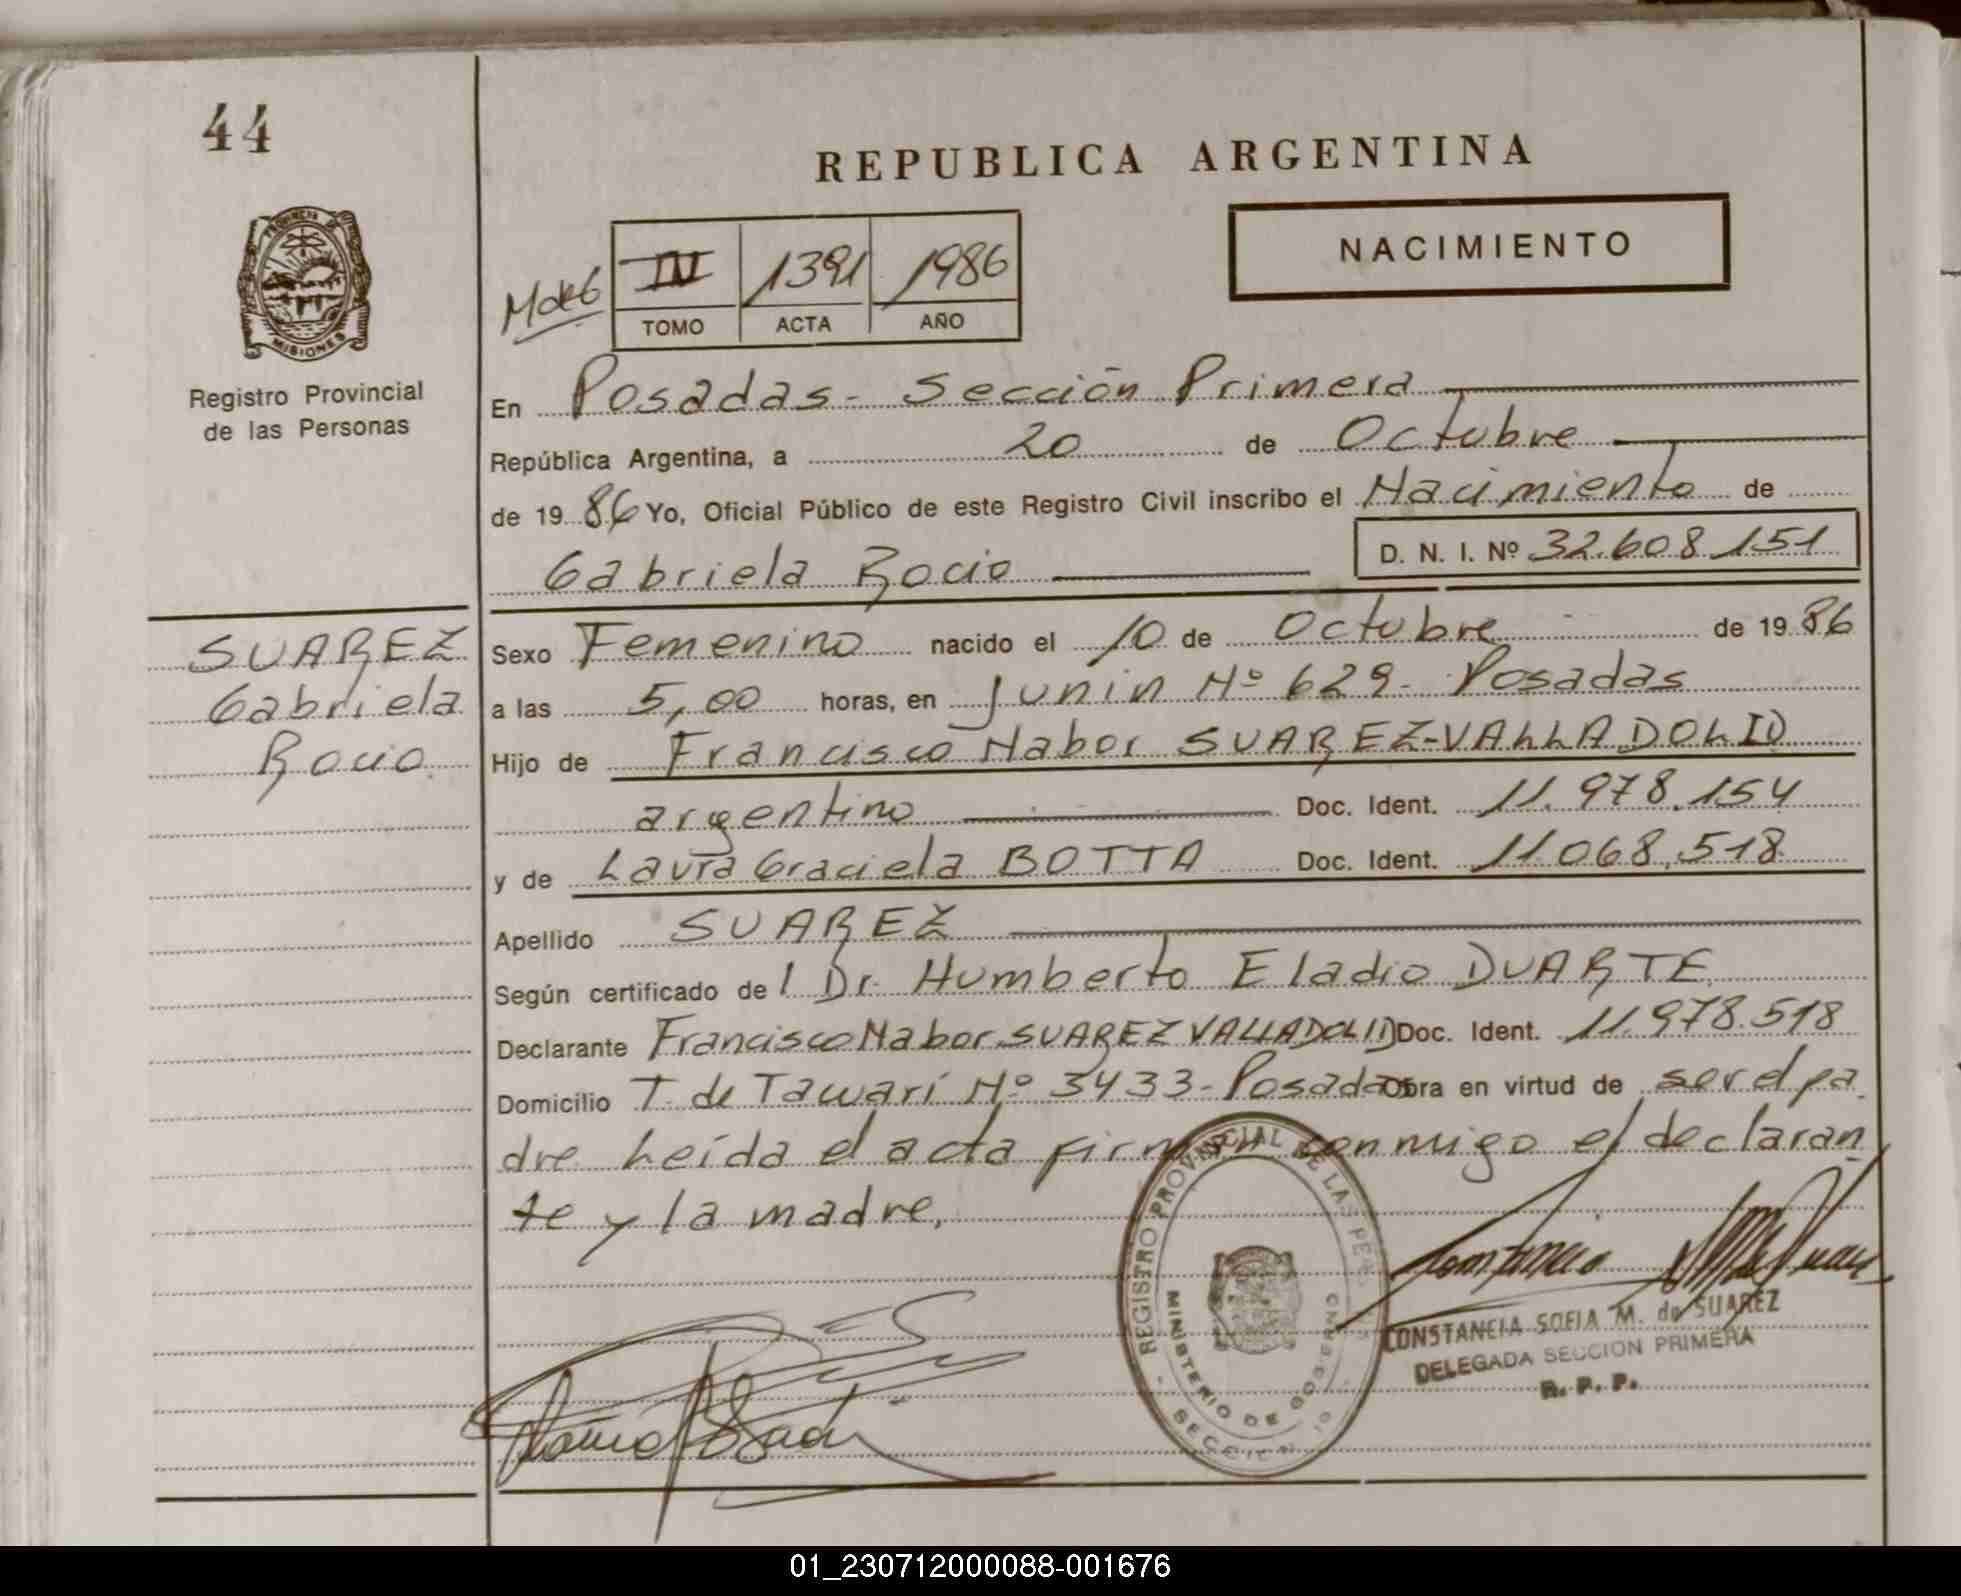 44
REPUBLICA ARGENTINA
NACIMIENTO
IV 1391 1986
TOMO ACTA AÑO
PROVINCIA
MISIONES
Registro Provincial
de las Personas
En Posadas - Sección Primera
República Argentina, a 20 de Octubre
de 1986 Yo, Oficial Público de este Registro Civil inscribo el Nacimiento de
D. N. I. Nº 32.608.151
Gabriela Rocio
SUAREZ
Gabriela
Rocio
Sexo Femenino nacido el 10 de Octubre de 1986
a las 5,00 horas, en Junin Nº 629 - Posadas
Hijo de Francisco Nabor SUAREZ-VALLADOLID
argentino Doc. Ident. 11.978.154
y de Laura Graciela BOTTA Doc. Ident. 11.068.518
Apellido SUAREZ
Según certificado del Dr. Humberto Eladio DUARTE
Declarante Francisco Nabor SUAREZ VALLADOLID Doc. Ident. 11.978.518
Domicilio T. de Tawari Nº 3433 - Posadas Obra en virtud de ser el pa
dre. Leída el acta firman conmigo el declaran
te y la madre,
REGISTRO PROVINCIAL DE LAS PERSONAS
MINISTERIO DE GOBIERNO
CONSTANCIA SOFIA M. de SUAREZ
DELEGADA SECCION PRIMERA
R. P. P.
01_230712000088-001676